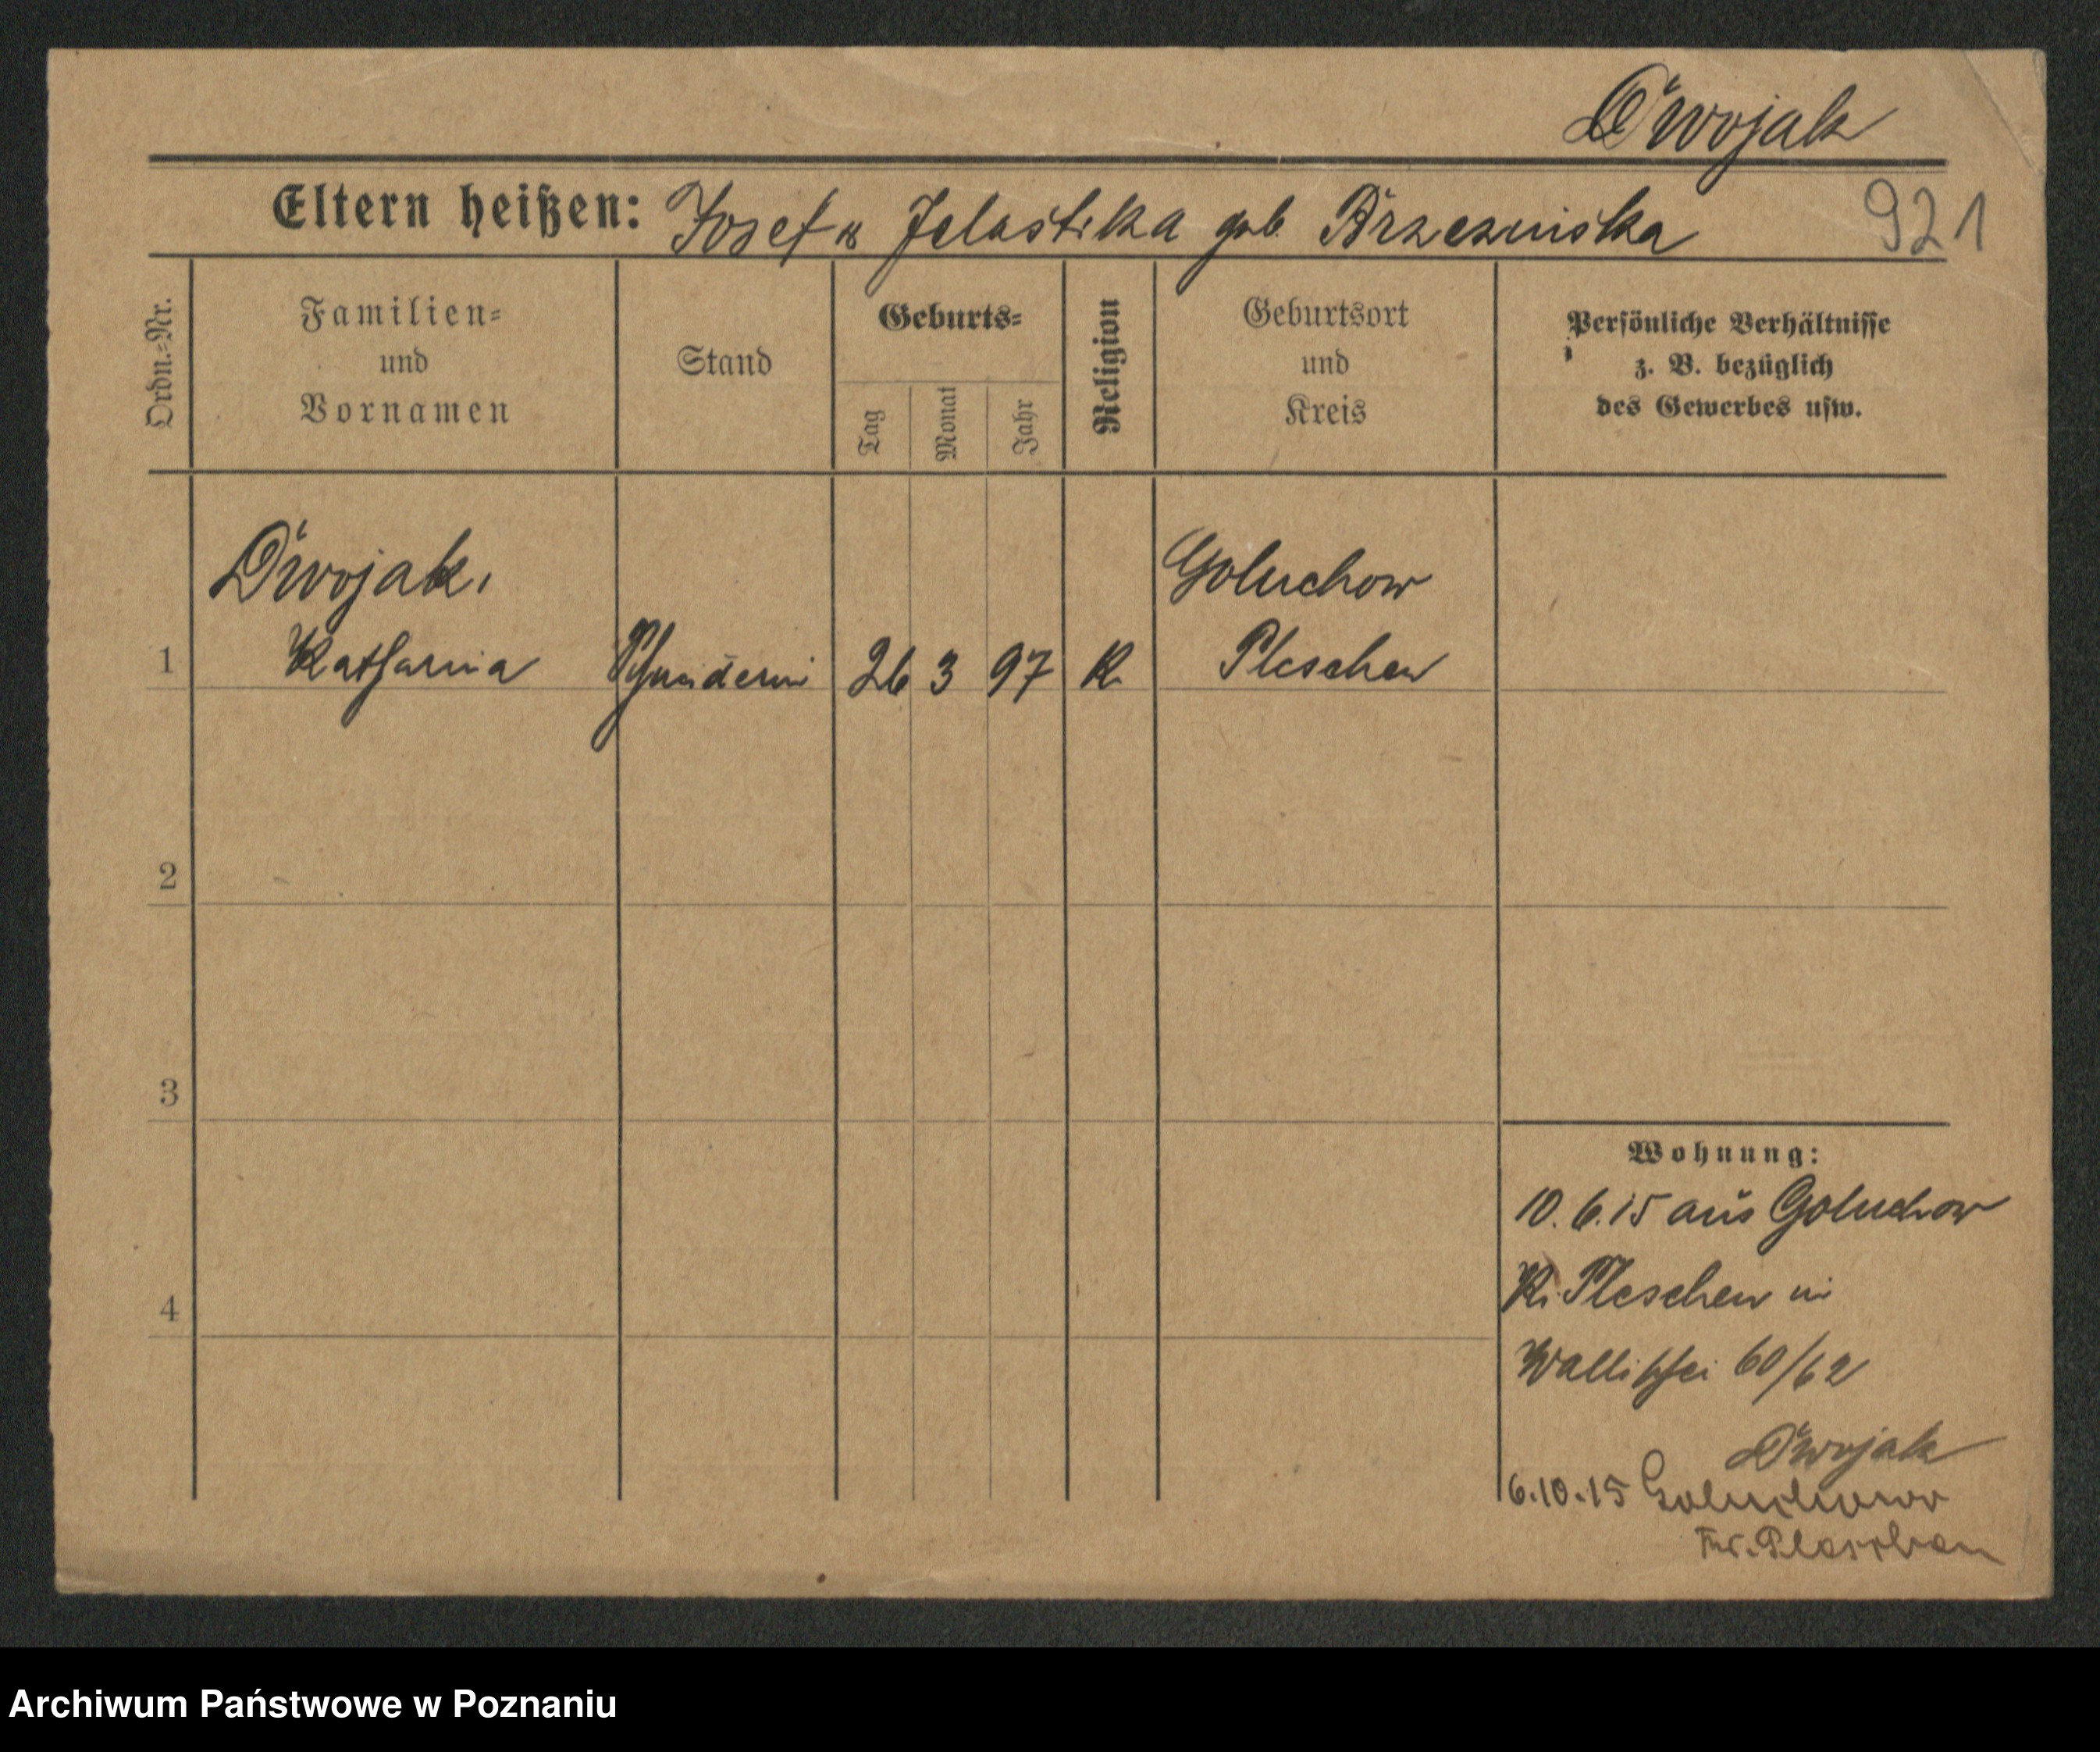 Dwojak
Eltern heißen: Josef u Jelastika geb. Brzezinska 921
Ordn.=Nr.
Familien=
und
Vornamen
Stand
Geburts=
Tag
Monat
Jahr
Religion
Geburtsort
und
Kreis
Persönliche Verhältnisse
z. B. bezüglich
des Gewerbes usw.
Dwojak, Goluchow
1 Katharina 26 3 97 K. Pleschen
2
3
4
Wohnung:
10. 6. 15 aus Goluchow
Kr. Pleschen in
Wallischei 60/62
Dwojak
6.10.15 Goluchow
Kr. Pleschen
Archiwum Państwowe w Poznaniu